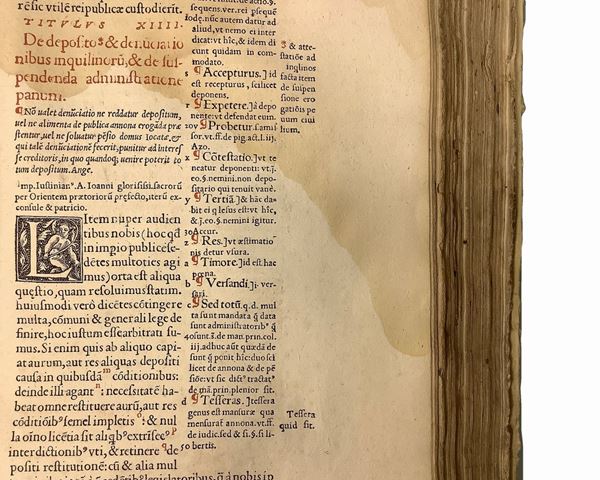 re sic vtilē reipublicæ custodierit.
TITVLVS XIIII.
De deposito & denūciatio
nibus inquilinorū, & de sus-
pendenda administratione
panum.
¶ Nō ualet denūciatio ne reddatur depositum,
uel ne alimenta de publica annona erogāda præ
stentur, uel ne soluatur pēsio domus locatæ. &
qui talē denūciationē fecerit, punitur ad interes
se creditoris, in quo quandoq; uenire poterit to
tum depositum. Ange.
Imp. Iustinian. A. Ioanni gloriosiss. sacrorū
per Orientem prætoriorū præfecto, iterū ex-
consule & patricio.
LItem nuper audien
tibus nobis (hoc qd
in impio publicē se-
dētes multoties agi
mus) orta est aliqua
quęstio, quam resoluimus statim.
huiusmodi verò dicētes cōtingere
multa, cōmuni & generali lege de
finire, hoc iustum esse arbitrati su-
mus. Si enim quis ab aliquo capi-
at aurum, aut res aliquas depositi
causa in quibusdā m cōditionibus:
deinde illi agant n: necessitatē ha-
beat omne restituere aurū, aut res
cōditiōib⁹ semel impletis o: & nul
la oīno licētia sit aliqb⁹ extrīsec⁹ p
interdictionib⁹ vti, & retinere q de-
positi restitutionē: cū & alia mul
sequens. vel rei psequē
lodę. nūc autem datur ad
aliud, vt nemo ei inter
dicat: vt hīc, & idem di
cunt quidam in com-
modato.
s ¶ Accepturus.] id
est recepturus, scilicet
deponens.
r ¶ Expetere.] à depo
nente: vt defendat eum.
¶ Probetur. s. amis
sor. vt. ff. de pig. act. l. ij.
Azo.
x ¶ Cōtestatio.] vt te
neatur deponenti: vt. j.
eo. §. nemini. non depo-
sitario qui tenuit vanè.
y ¶ Tertiā.] & hāc da-
bit ei q lesus est: vt hīc,
& j. eo. §. nemini igitur.
Accur.
z ¶ Res.] vt æstimatio
nis detur vsura.
a ¶ Timore.] id est hac
pœna.
b ¶ Versandi.] i. ver-
sari.
c ¶ Sed totū. q. d. mul
ta sunt mandata q̄ data
sunt administratorib⁹ q̄
sunt. s. de man. prin. col.
iij. adhuc aūt quædā de
sunt q̄ ponit hīc: duo sci
licet de annona & de pē
siōe: vt sic dict⁹ tractat⁹
de mā. prin. plenior sit.
d ¶ Tesseras.] tessera
genus est mensuræ qua
mensurat annona. vt. ff.
de iudic. sed & si. §. si li-
bertis.
& atte-
statiōe ad
inglinos
facta item
de suspen
sione ero
gatiōis pe
uum ciui
lium.
Tessera
quid sit.